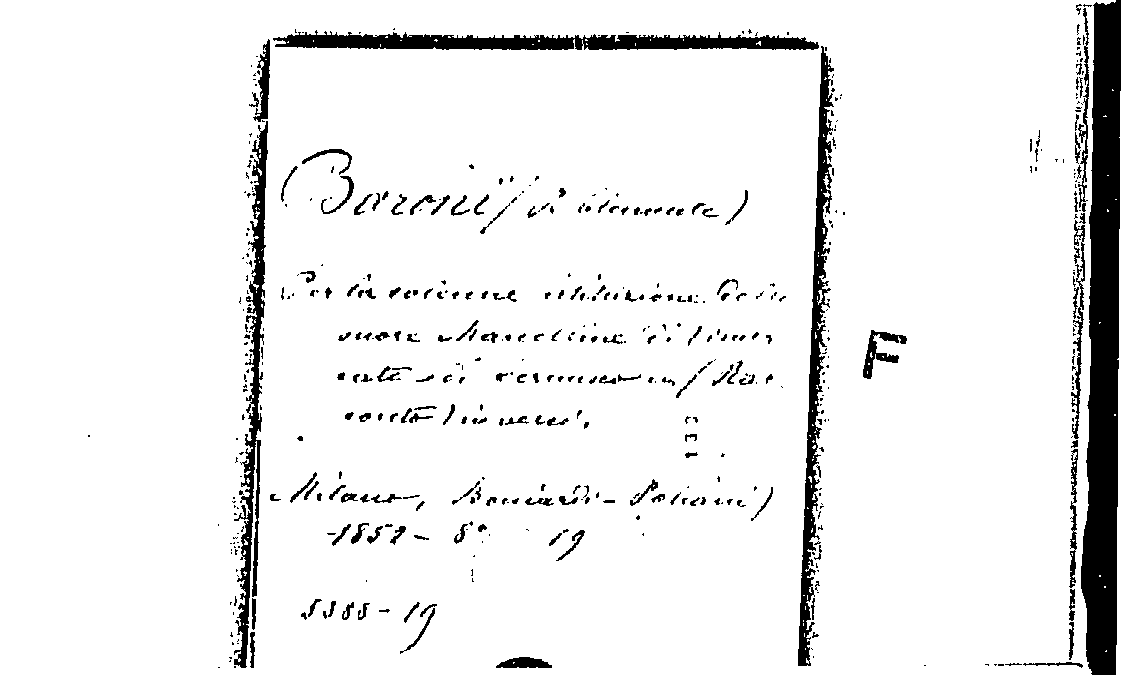 Baroni (P. Clemente)
Per la solenne istituzione delle
suore Marcelline di
cato Rac-
conto in versi.
133
Milano, Boniardi-Pogliani)
1852 - 8° 19
5388-19
F